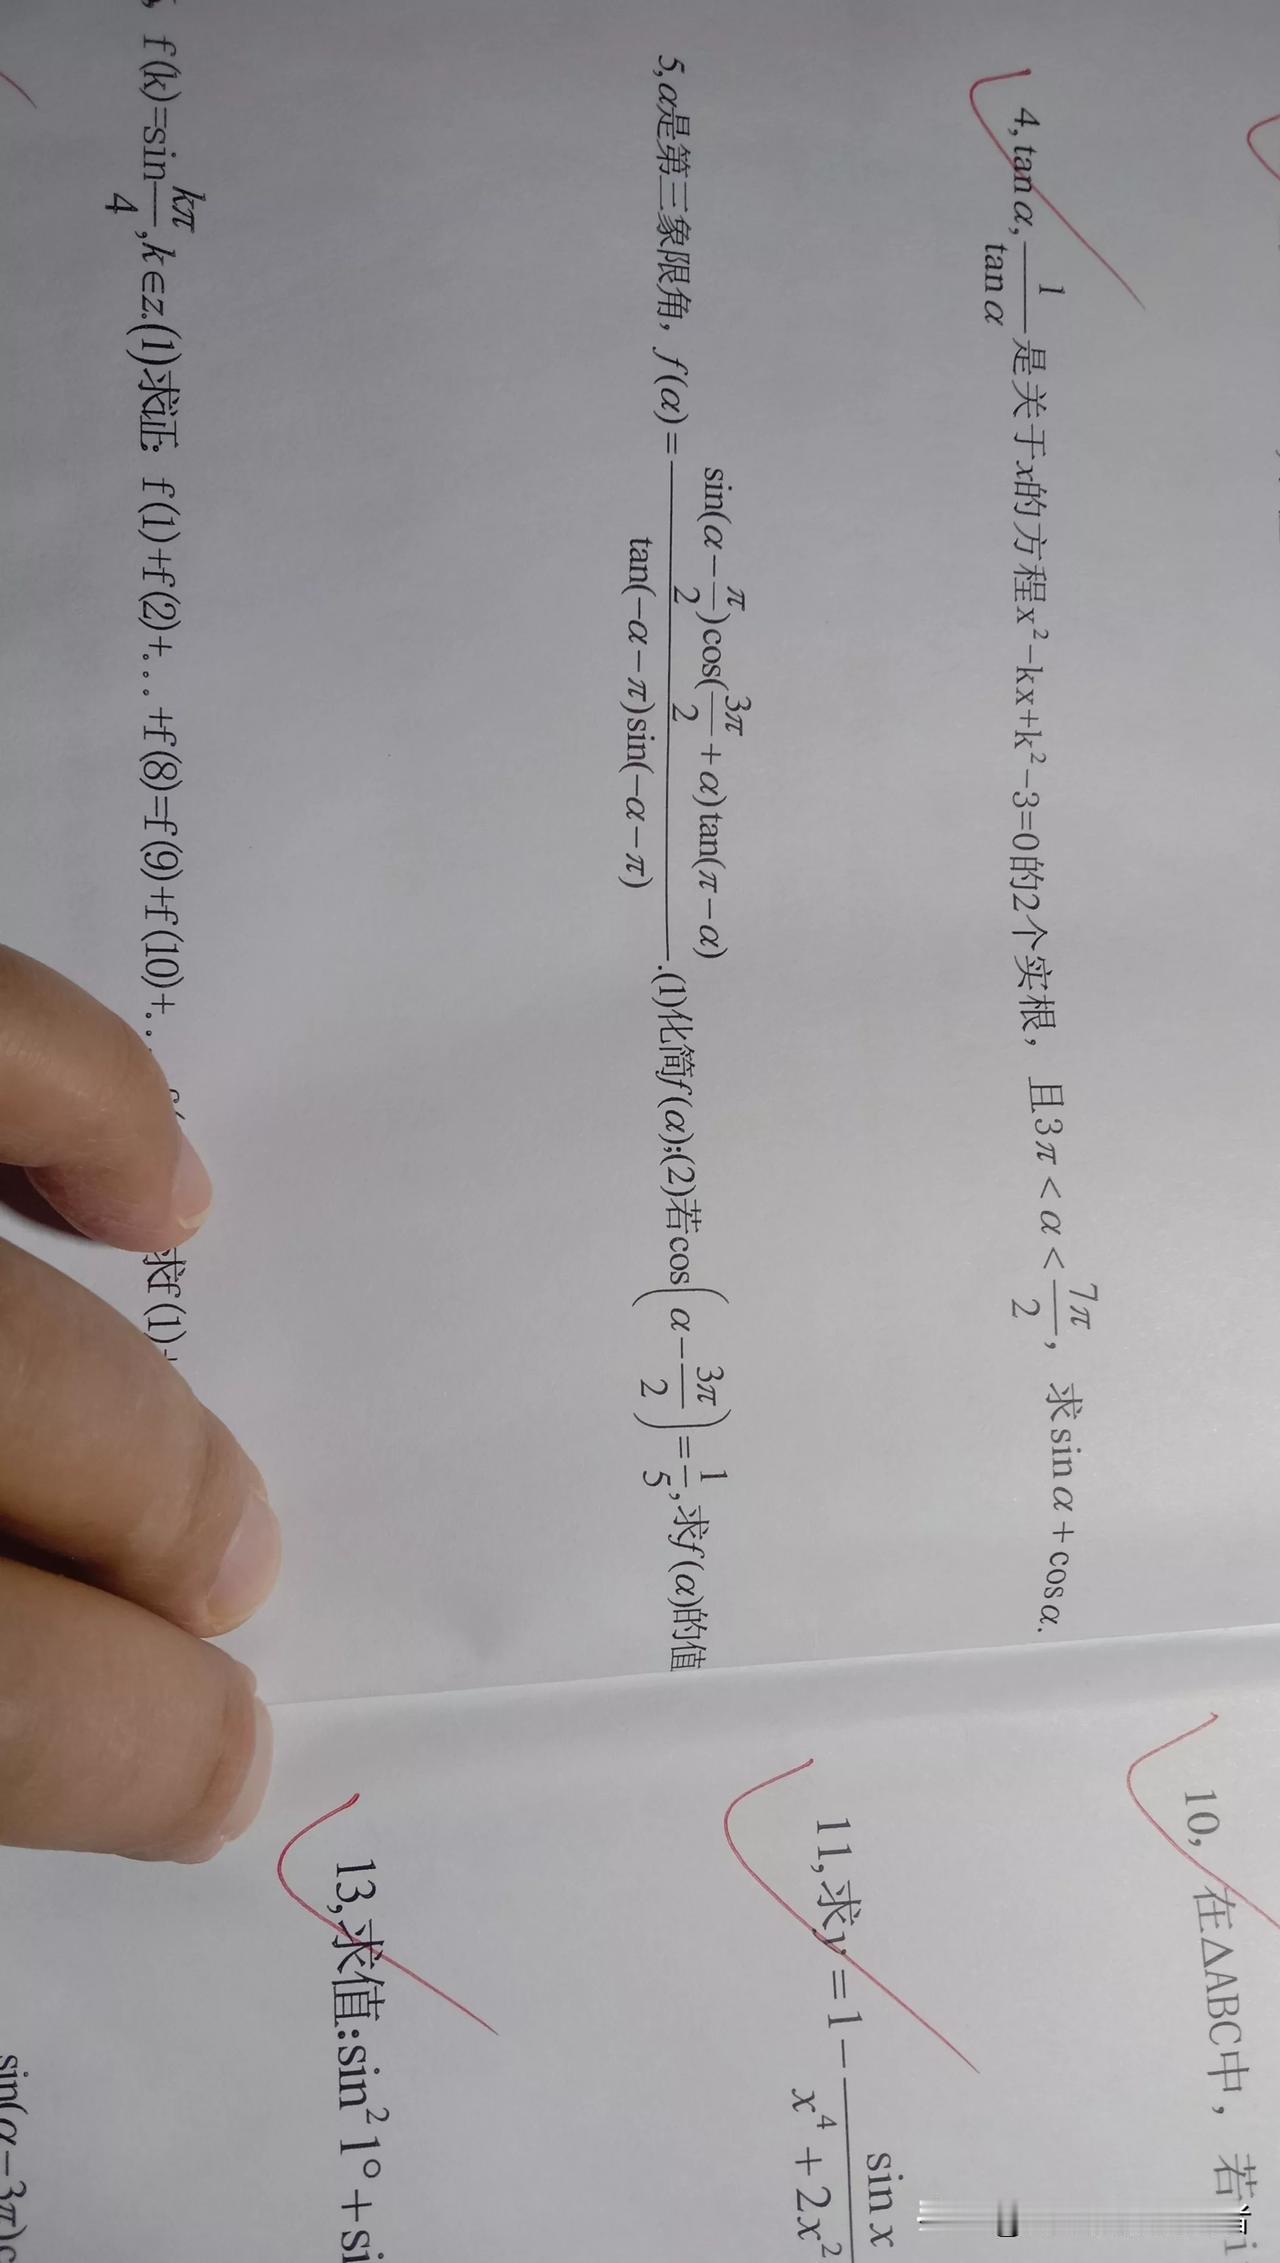 4, tanα, 1/tanα 是关于x的方程x²-kx+k²-3=0的2个实根，且3π<α<7π/2，求sinα+cosα.
5, α是第三象限角，f(α)=sin(α-π/2)cos(3π/2+α)tan(π-α)/tan(-α-π)sin(-α-π).(1)化简f(α);(2)若cos(α-3π/2)=1/5,求f(α)的值
f(k)=sin kπ/4, k∈z.(1)求证: f(1)+f(2)+...+f(8)=f(9)+f(10)+..
求f(1)+
10, 在ΔABC中，若
11, 求y=1-sinx/x⁴+2x²
13, 求值:sin²1°+si
sin(α-3π)c